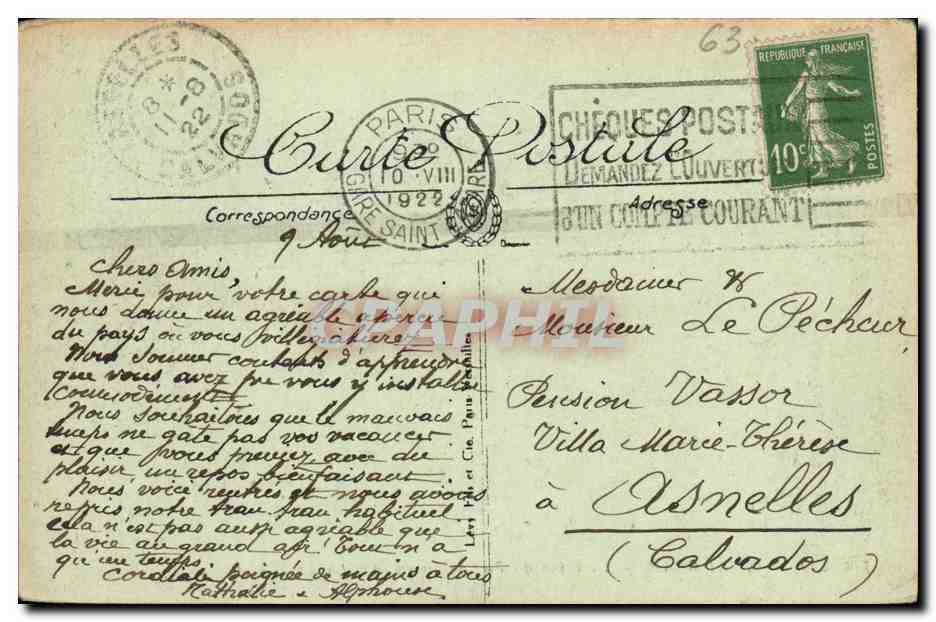 63
ASNELLES
* 
11-8
22
CALVADOS
PARIS
10 VIII
1922
GARE SAINT LAZARE
CHEQUES POSTAUX
DEMANDEZ L'OUVERTURE
D'UN COMPTE COURANT
REPUBLIQUE FRANÇAISE
10c
POSTES
Carte Postale
Correspondance
Adresse
9 Août
Chers Amis,
Merci pour votre carte qui
nous donne un agréable aperçu
du pays où vous villégiaturez
Nous sommes contents d'apprendre
que vous avez pu vous y installer
commodément
Nous souhaitons que le mauvais
temps ne gate pas vos vacances
et que vous prenez avec du
plaisir un repos bienfaisant
Nous voici rentrés et nous avons
repris notre train train habituel
cela n'est pas aussi agréable que
la vie au grand air! Tout n'a
qu'un temps
Cordiale poignée de mains à tous
Nathalie & Alphonse
Lévy Fils et Cie. Paris Versailles
Mesdames &
Monsieur Le Pécheur
Pension Vassor
Villa Marie-Thérèse
à Asnelles
(Calvados)
CPAPHIL